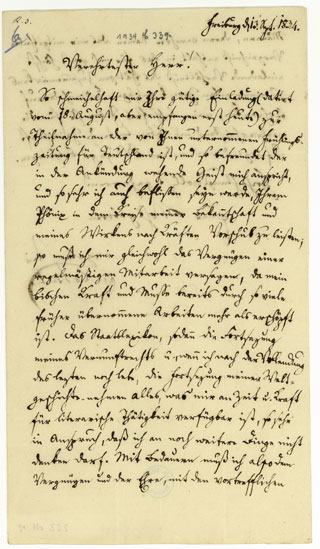 Freiburg d 13 Sept. 1834.
1934 339
Verehrtester Herr!
So schmeichelhaft mir Ihre gütige Einladung (datirt
vom 18 August, aber empfangen erst heute) zur
Theilnahme an der von Ihnen unternommenen Frühlings-
zeitung für Deutschland ist, und so befreundet der
in der Ankündung wehende Geist mich anspricht,
und so sehr ich auch beflissen seyn werde, Ihrem
Phönix in dem Kreise meiner Bekantschaft und
meines Wirkens nach Kräften Vorschub zu leisten;
so muß ich mir gleichwohl das Vergnügen einer
regelmäßigen Mitarbeit versagen, da mein
bischen Kraft und Muße bereits durch so viele
früher übernommene Arbeiten mehr als erschöpft
ist. Das Staatslexikon, sodan die Fortsezung
meines Vernunftrechts u, wen ich nach der Vollendung
des lezten noch leb, die Fortsezung meiner Welt-
geschichte nehmen alles, was mir an Zeit u. Kraft
für literarische Thätigkeit verfügbar ist, so sehr
in Anspruch, daß ich an noch weitere Dinge nicht
denken darf. Mit Bedauern muß ich also dem
Vergnügen und der Ehre, mit den vortrefflichen